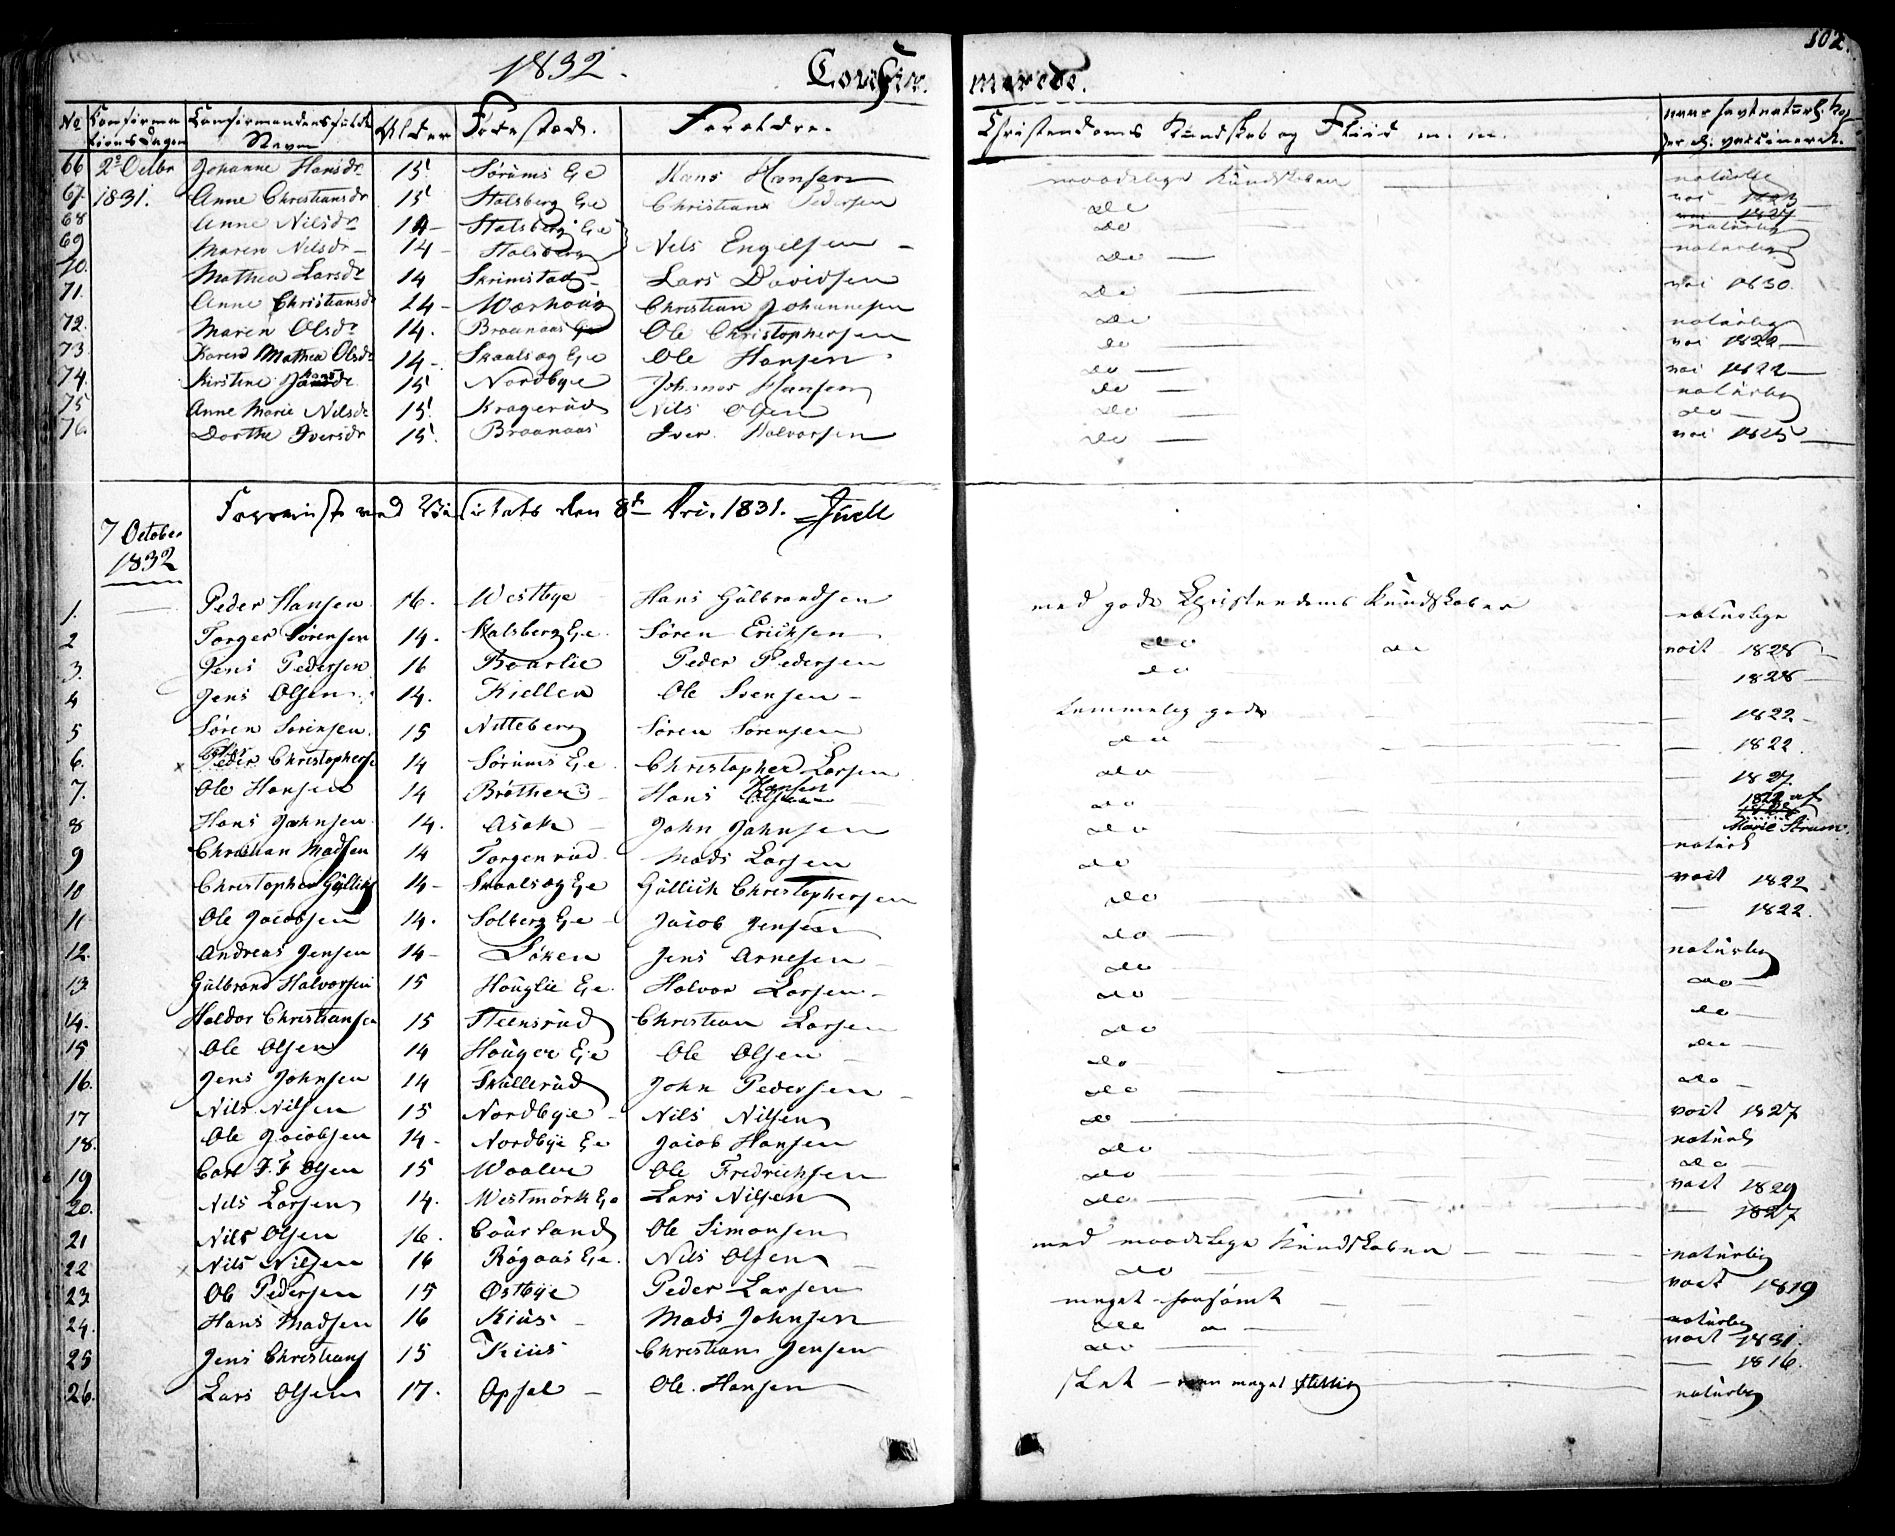 102.
1832. Confir- merede.
No Confirmations Dagen Confirmandens fulde Navn Alder Fødested. Forældre. Christendoms Kundskab og Fliid m. m. naar havt naturl. Kop
per el. vaccineret.
66 2den Octbr Johanne Hansdr 15 Sørums Eie Hans Hansen maadelige Kundskaber naturlige
67 1831. Anne Christiansdr 15 Stalsberg Eie Christian Pedersen do
68 Anne Nilsdr 14 Stalsberg Eie do naturlig
69 Maren Nilsdr 14 Stalsberg Nils Engelsen do naturlig
70. Mathea Larsdr 14 Skrimstad Lars Davidsen do vac 1830.
71. Anne Christiansdr 14 Christian Johannesen do naturlig
72. Maren Olsdr 14. Braanaas Eie Ole Christophersen do vac 1822
73 Karen Mathea Olsdr 14 Skaalsog Eie Ole Hansen do vac 1822
74. Kirstine Hansdr 15 Nordbye Johannes Hansen do naturlig
75 Anne Marie Nilsdr 15 Kragerud Nils Olsen do do
76. Dorthe Iversdr 15 Braanaas Iver Halvorsen do vac 1823
ved Visitats den 8de 1831. Juell
7 October
1832
1. Peder Hansen 16. Westbye Hans Gulbrandsen med gode Christendoms Kundskaber naturlige
2 Torger Sørensen 14. Stalsberg Eie Søren Ericksen do do vacit 1828
3. Jens Pedersen 16 Baarlie Peder Pedersen do 1828
4 Jens Olsen 14. Kiellen Ole Svensen temmelig gode 1822
5 Søren Sørensen 15 Nitteberg Søren Sørensen do 1822
6. Peder Christophersen 14 Sørums Eie Christopher Larsen do 1827
7. Ole Hansen 14 Brøther Hans Hansen do 1822 af
Marie Strum.
8 Hans Johnsen 14. Asak John Johnsen do
9 Christian Madsen 14 Torgenrud Mads Larsen do naturl
10 Christopher Gullichs 14 Skaalsog Eie Gullich Christophersen do vacit 1822
11 Ole Jacobsen 14. Solberg Eie Jacob Jensen do 1822.
12. Andreas Jensen 14 Løken Jens Arnesen do naturlig
13 Gulbrand Halvorsen 15 Houglie Eie Halvor Larsen do do
14. Haldor Christiansen 15 Steensrud Christian Larsen do do
15 Ole Olsen 14 Houger Eie Ole Olsen do do
16. Jens Johnsen 14 Skullerud John Pedersen do do
17 Nils Nilsen 15 Nordbye Nils Nilsen do vacit 1827
18. Ole Jacobsen 14 Nordbye Eie Jacob Hansen do naturl
19 Carl F. F. Olsen 15 Waaler Ole Fredrichsen do do
20. Nils Larsen 14. Westmork Eie Lars Nilsen do vacit 1829
21 Nils Olsen 16. Ole Simonsen med maadelige Kundskaber 1827
22 Nils Nilsen 16 Røgaas Eie Nils Olsen do naturlig
23 Ole Pedersen 15 Østbye Peder Larsen meget forsømt vacit 1819
24. Hans Madsen 16 Kius Mads Johnsen do naturlig
25 Jens Christians 15 Kius Christian Jensen do vacit 1831.
1816.
26. Lars Olsen 17. Opsal Ole Hansen slet men meget flittig naturlig